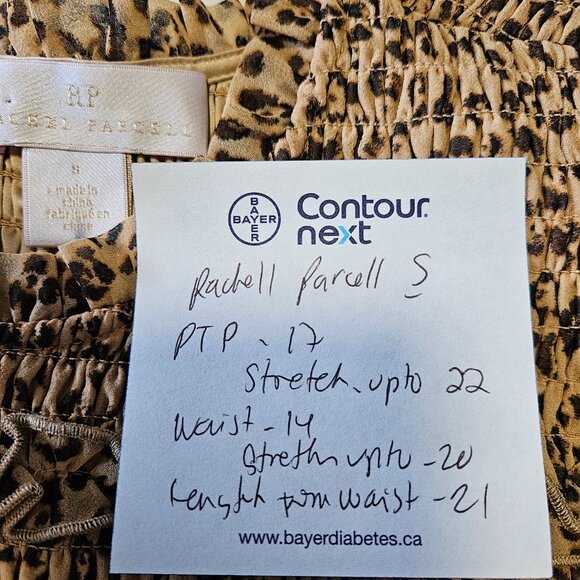 RP
RACHEL PARCELL
S
made in
china
fabriqué en
chine
BAYER
BAYER
Contour
next
Rachell Parcell S
PTP - 17
Stretch - upto 22
Waist - 14
Stretch upto - 20
Length from waist - 21
www.bayerdiabetes.ca